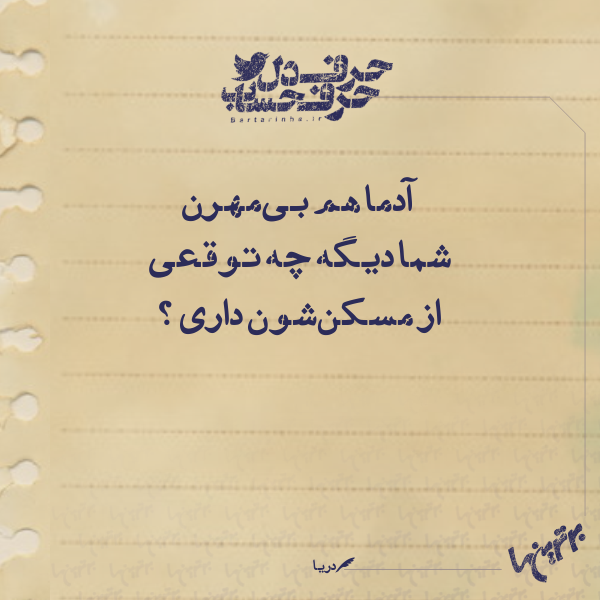 حرف دل
حرف حساب
Bartarinha.ir
آدما هم بی‌مهرن
شما دیگه چه توقعی
از مسکن‌شون داری ؟
دریا
برترین‌ها